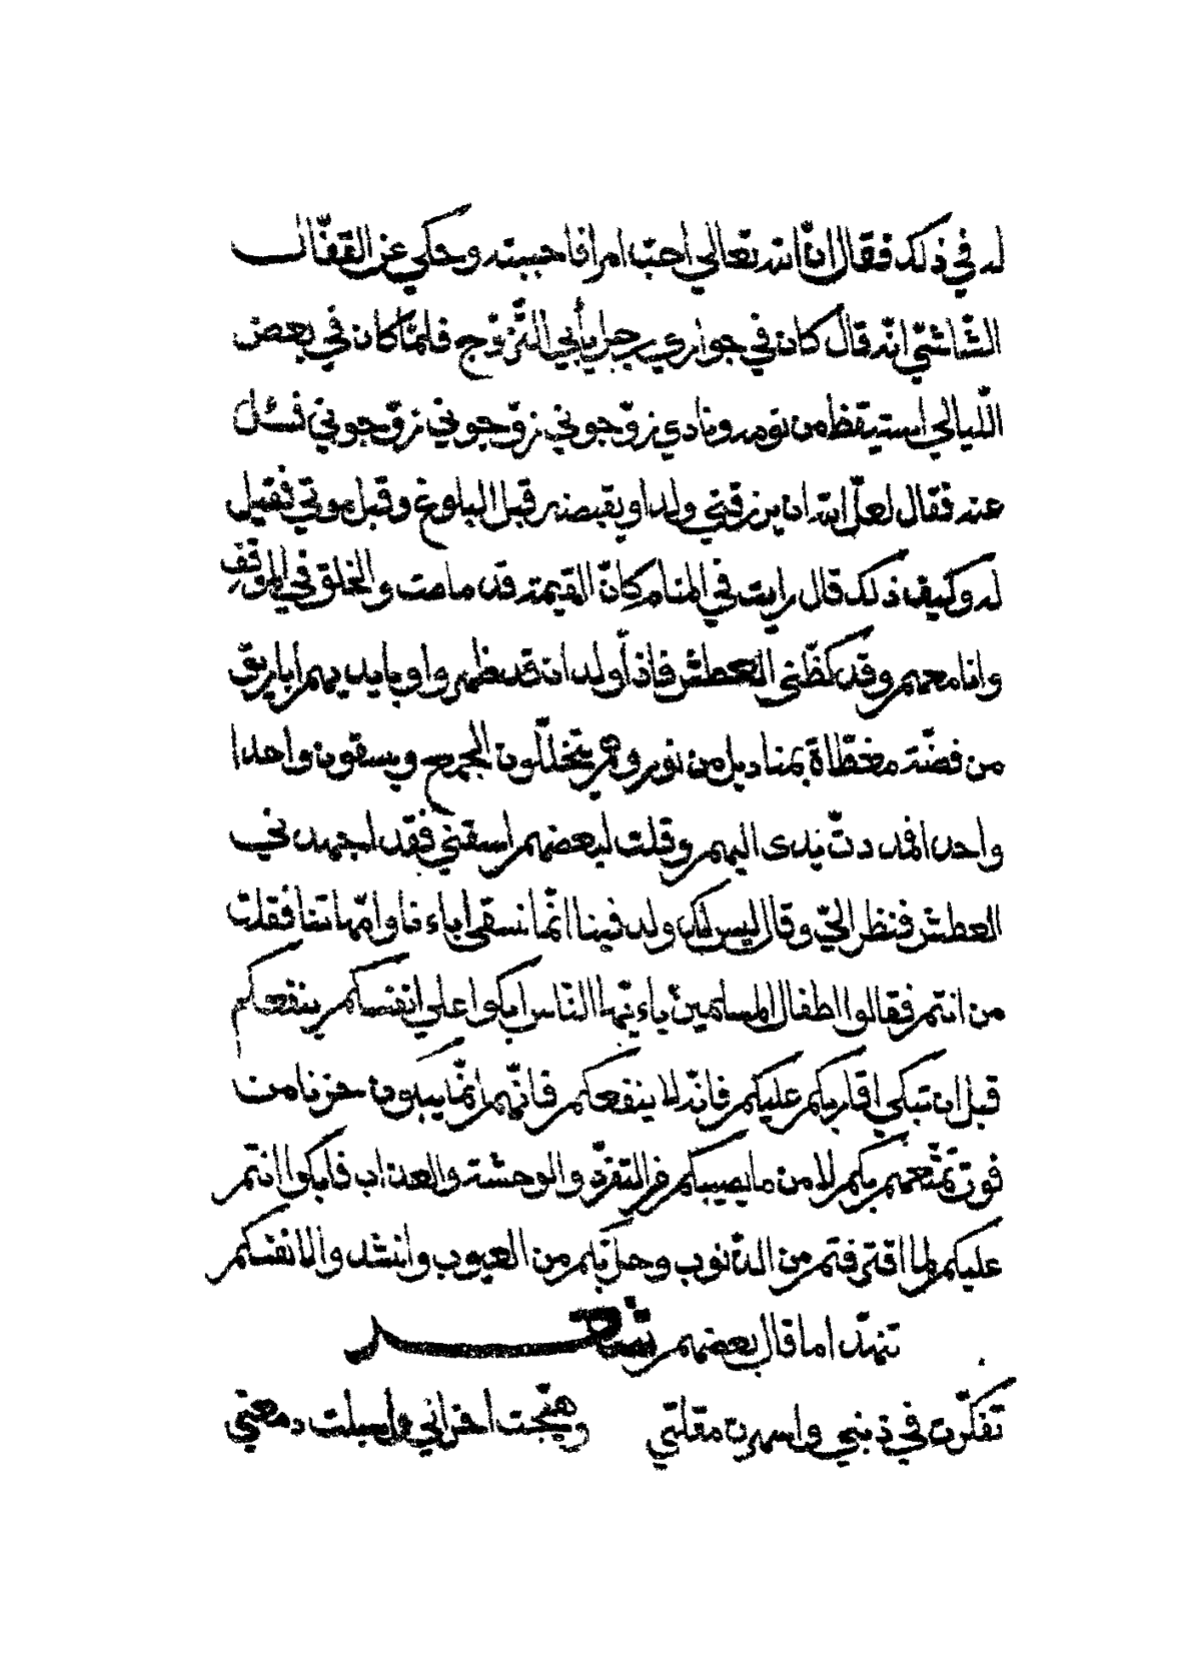 له في ذلك فقال انّ الله تعالي احبّ امرا فاحببته وحكي عن القفّال
الشّاشيّ انّه قال كان في جواري رجل يأبي التّزوّج فلمّا كان في بعض
اللّيالي استيقظ من نومه ونادي زوّجوني زوّجوني زوّجوني فسئل
عنه فقال لعلّ الله ان يرزقني ولدا ويقبضه قبل البلوغ وقبل موتي فقيل
له وكيف ذلك قال رايت في المنام كانّ القيمة قد قامت والخلق في الموقف
وانا معهم وقد كظّني العطش فاذا ولدان قد ظهروا وبايديهم اباريق
من فضّة مغطّاة بمناديل من نور وهم يتخلّلون الجمع ويسقون واحدا
واحدا فمددتّ يدى اليهم وقلت لبعضهم اسقني فقد اجهدني
العطش فنظر اليّ وقال ليس لك ولد فينا انّما نسقي اباءنا وامّهاتنا فقلت
من انتم فقالوا اطفال المسلمين ياءيّها النّاس ابكوا علي انفسكم ينفعكم
قبل ان تبكي اقاربكم عليكم فانّه لا ينفعكم فانّهم انّما يبكون حزنا من
فوت تمتّعهم بكم لا من ما يصيبكم من التفرّد والوحشة والعذاب فابكوا انتم
عليكم لما اقترفتم من الذّنوب وحلّ بكم من العيوب وانشدوا لانفسكم
تنهّدا ما قال بعضهم شعر
تفكّرت في ذنبي واسهرت مقلتي وهيّجت احزاني واسبلت دمعتي